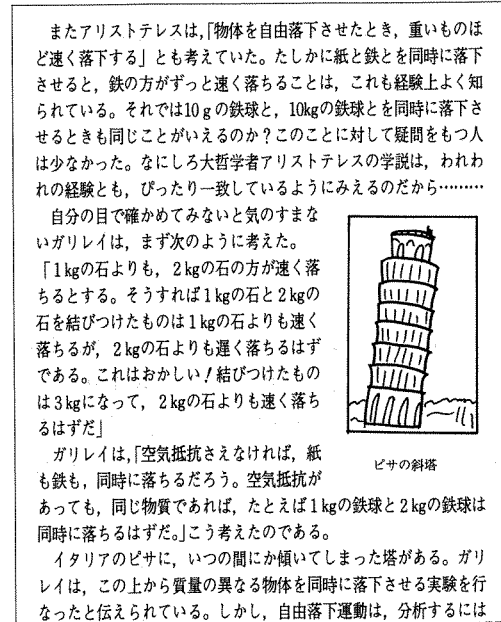 またアリストテレスは,「物体を自由落下させたとき,重いものほ
ど速く落下する」とも考えていた。たしかに紙と鉄とを同時に落下
させると,鉄の方がずっと速く落ちることは,これも経験上よく知
られている。それでは10gの鉄球と,10kgの鉄球とを同時に落下さ
せるときも同じことがいえるのか?このことに対して疑問をもつ人
は少なかった。なにしろ大哲学者アリストテレスの学説は,われわ
れの経験とも,ぴったり一致しているようにみえるのだから………
自分の目で確かめてみないと気のすまな
いガリレイは,まず次のように考えた。
「1kgの石よりも,2kgの石の方が速く落
ちるとする。そうすれば1kgの石と2kgの
石を結びつけたものは1kgの石よりも速く
落ちるが,2kgの石よりも遅く落ちるはず
である。これはおかしい!結びつけたもの
は3kgになって,2kgの石よりも速く落ち
るはずだ」
ガリレイは,「空気抵抗さえなければ,紙
も鉄も,同時に落ちるだろう。空気抵抗が
あっても,同じ物質であれば,たとえば1kgの鉄球と2kgの鉄球は
同時に落ちるはずだ。」こう考えたのである。
イタリアのピサに,いつの間にか傾いてしまった塔がある。ガリ
レイは,この上から質量の異なる物体を同時に落下させる実験を行
なったと伝えられている。しかし,自由落下運動は,分析するには
ピサの斜塔